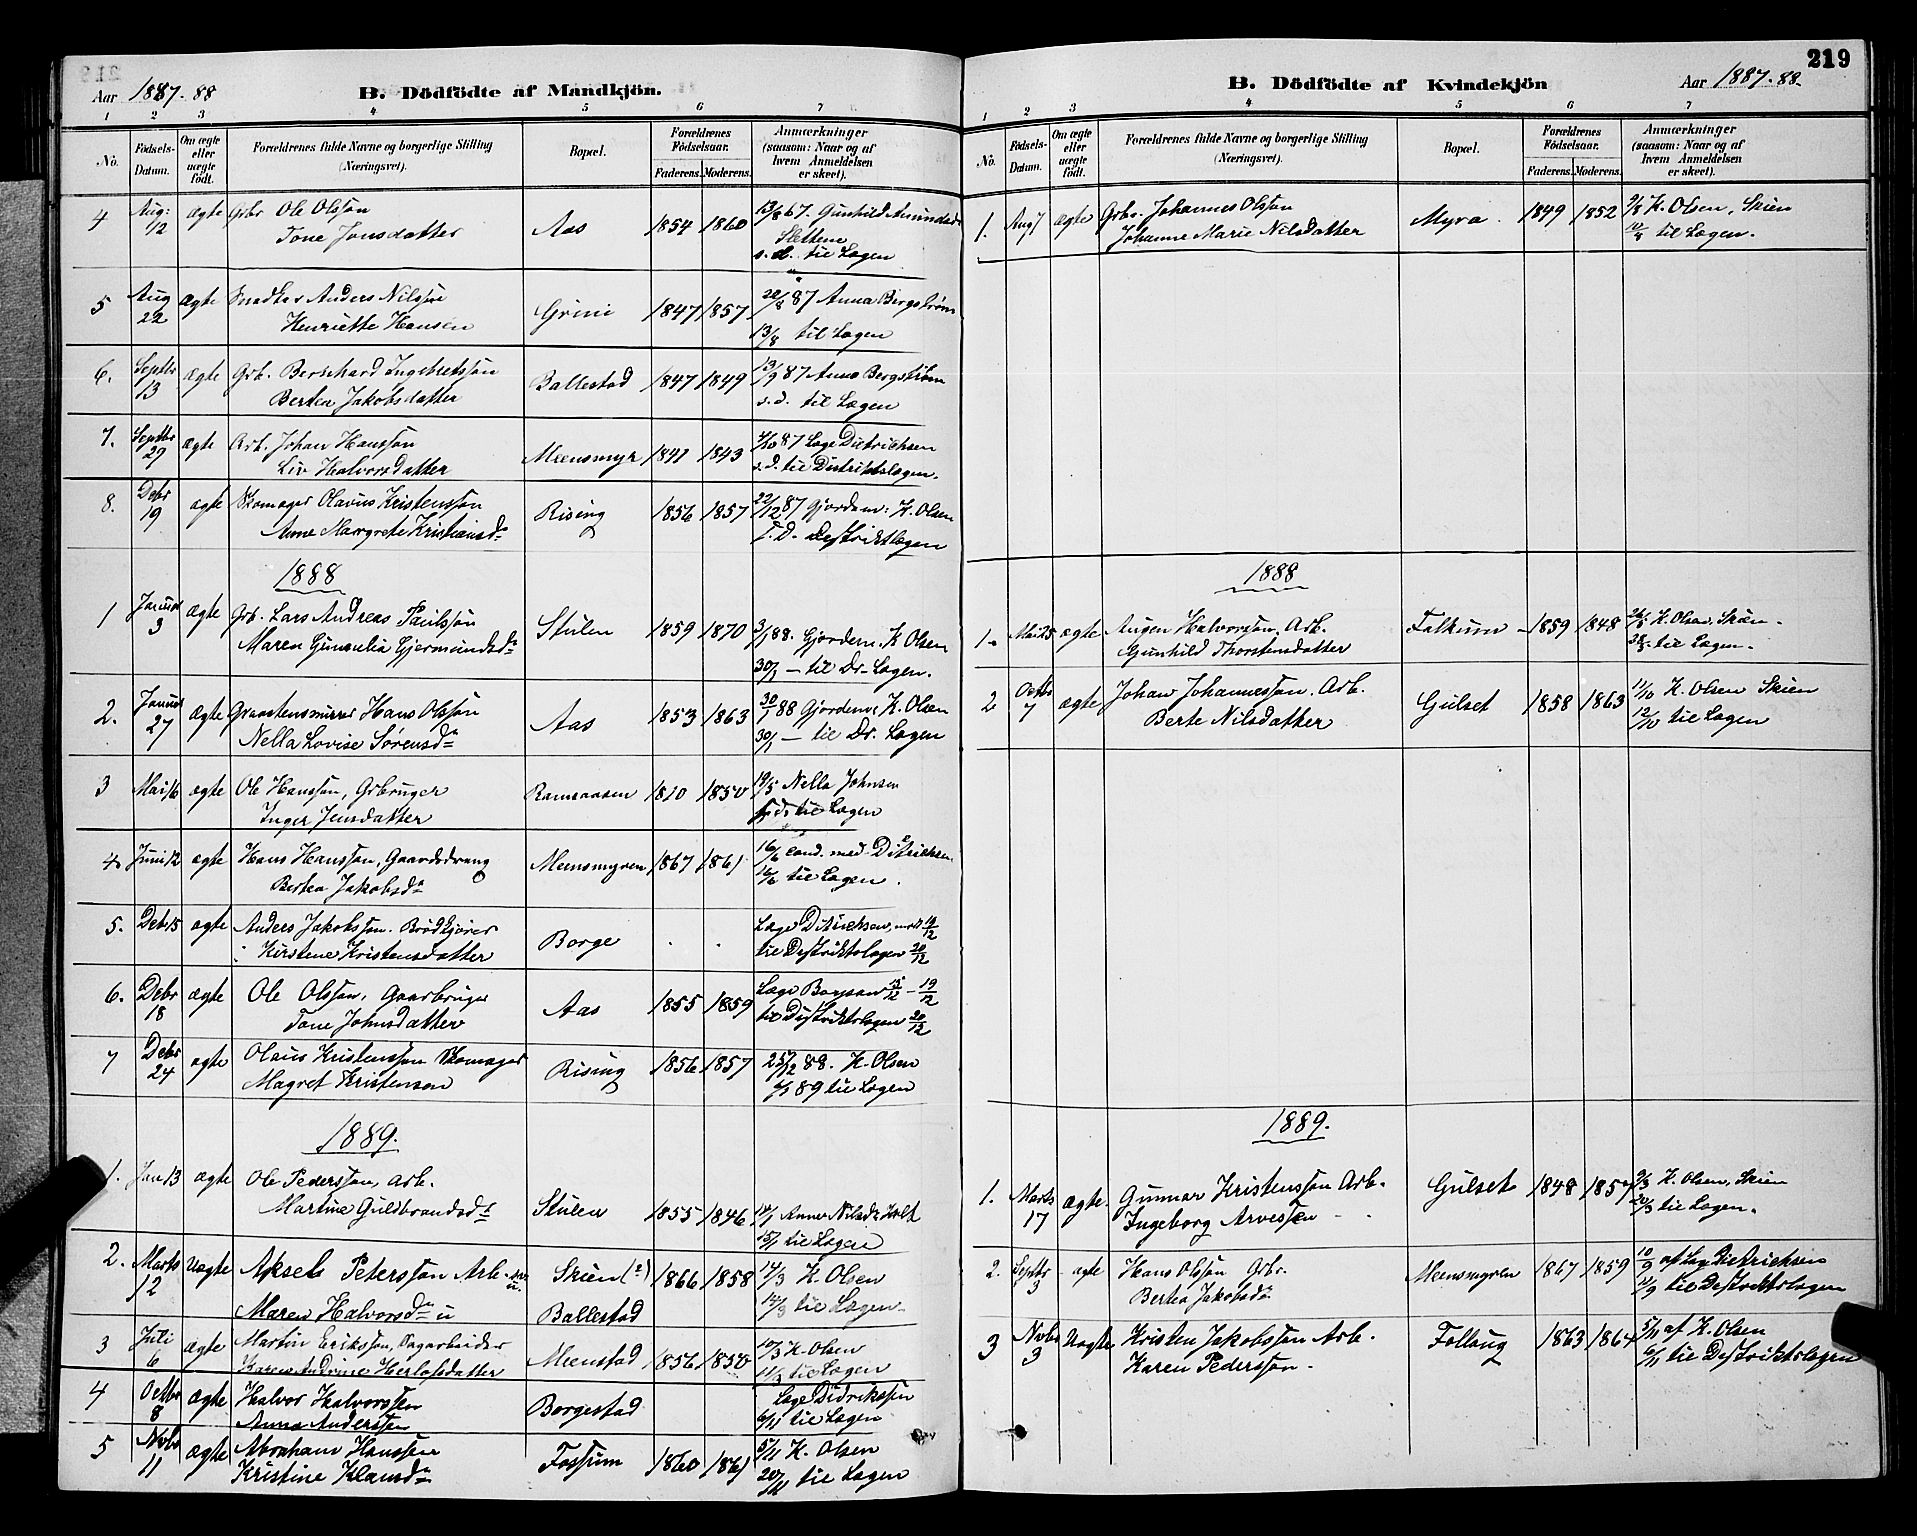 219
Aar 1887-88
B. Dödfödte af Mandkjön.
1 2 3 4 5 6 7
No.
Födsels-Datum.
Om ægte eller uægte födt.
Forældrenes fulde Navne og borgerlige Stilling (Næringsvei).
Bopæl.
Forældrenes Födselsaar.
Faderens. Moderens.
Anmærkninger (saasom: Naar og af hvem Anmeldelsen er skeet).
4 Aug: 12 ægte Grbr Ole Olsson Aas 1854 1860 Gunhild Amundsd.
Tone Jonsdatter Slettene
s.d. til Lægen
5 Aug 22 ægte Anders Nilsson Grini 1847 1857 22/8 87 Anna Bergstrøm
Henriette Hansen 13/8 til Lægen
6. Septbr 13 ægte Grb. Bernhard Ingebretsson Ballestad 1847 1849 13/9 87 Anna Bergstrøm
Berthea Jakobsdatter s.d. til Lægen
7. Septbr 29 ægte Arb. Johan Hansson Meensmyr 1841 1843 87 Læge Dietrichsen
Liv Halvorsdatter s.d. til Distriktslægen.
8. Debr 19 ægte Skomager Olavus Kristensson Rising 1856 1857 22/12 87 Gjordem: K. Olsen
Anne Margrete Kristiansdr S.D. Destriktlægen
1888
1 Januar 3 ægte Grb. Lars Andreas Paulsson Stulen 1859 1870 3/1 88. Gjordem. K Olsen
Maren Gunelia Gjermundsdr 30/1 — til Dr. Lægen.
2. Januar 27 ægte Graastensmurer Hans Olsson Aas 1853 1863 30/1 88 Gjordem: K. Olsen
Nella Lovise Sørensdr 30/1 — til Dr. Lægen
3 Mai 16 ægte Ole Hansson, Grbruger Ramsaasen 1810 1850 19/5 Nella Johnsen
Inger Jensdatter s.d. til Lægen
4. Juni 12 ægte Hans Hansson, Gaardsdreng Meensmyren 1867 1861 16/6 cand. med. Ditrichsen
Berthea Jakobsdr 16/6 til Lægen.
5. Debr 15 ægte Anders Jakobsson. Brødkjører Borge . . Læge Ditrichsen, 19/12
Kirstene Kristensdatter til Destriktslægen 20/12
6. Debr 18 ægte Ole Olsson, Gaarbruger Aas 1855 1859 Læge 18/12 - 19/12
Tone Johnsdatter til Distriktslægen 20/12
7 Debr 24 ægte Olaus Kristensson Skomager Rising 1856 1857 25/12 88. K. Olsen
Magret Kristenson 89 til Lægen
1889.
1. Jan 13 ægte Ole Pedersson, Arb.
Martine Guldbrandsdr Stulen 1855 1846 14/1 Anne Nilsdr Holt
15/1 til Lægen
2. Marts 12 uægte Aksel Petersson Arb. Skien (?) 1866 1858 14/3 K. Olsen
Maren Halvorsdr u Ballestad 14/3 til Lægen.
3 Juli 6 ægte Martin Eriksson, Dagarbeider Meenstad 1856 1850 K. Olsen
Karen Andrine Herlofsdatter til Lægen
4 Octbr 8 ægte Halvor Halvorssen Borgestad Læge Didriksen
Anna Anderssen 6/11 til Lægen
5 Novbr 11 ægte Abraham Hanssen Fossum 1860 1861 5/11 K. Olsen
Kristine Klausdr 20/11 til Lægen
219
B. Dödfödte af Kvindekjön
Aar 1887-88.
1 2 3 4 5 6 7
No.
Födsels-Datum.
Om ægte eller uægte födt.
Forældrenes fulde Navne og borgerlige Stilling (Næringsvei).
Bopæl.
Forældrenes Födselsaar.
Faderens. Moderens.
Anmærkninger (saasom: Naar og af hvem Anmeldelsen er skeet).
1. Aug 7 ægte Grbr. Johannes Olsson Myra. 1849 1852 9/8 K. Olsen, Skien
Johanne Marie Nilsdatter til Lægen.
1888
1. Mai 25 ægte Augen Halvorsson, Arb. Falkum 1859 1848 26/5 K. Olsen, Skien.
Gunhild Thorstensdatter 28/5 til Lægen.
2 Octbr 7 ægte Johan Johannesson, Arb. Gulset 1858 1863 11/10 K. Olsen Skien
Berte Nilsdatter 12/10 til Lægen
1889.
1. Marts 17 ægte Gunnar Kristensson Arb. Gulset 1848 1857 K. Olsen, Skien
Ingeborg Arvessen 20/3 til Lægen.
2. Septbr 3 ægte Hans Olsson Grbr. Meensmyren 1867 1859 10/9 af Læge Dietrichsen
Berthea Jakobsdr 11/9 til Destriktslægen
3 Novbr 3 uægte Kristen Jakobsson Arb. Follaug 1863 1864 5/11 af K. Olsen
Karen Pedersson. 6/11 til Destriktslægen